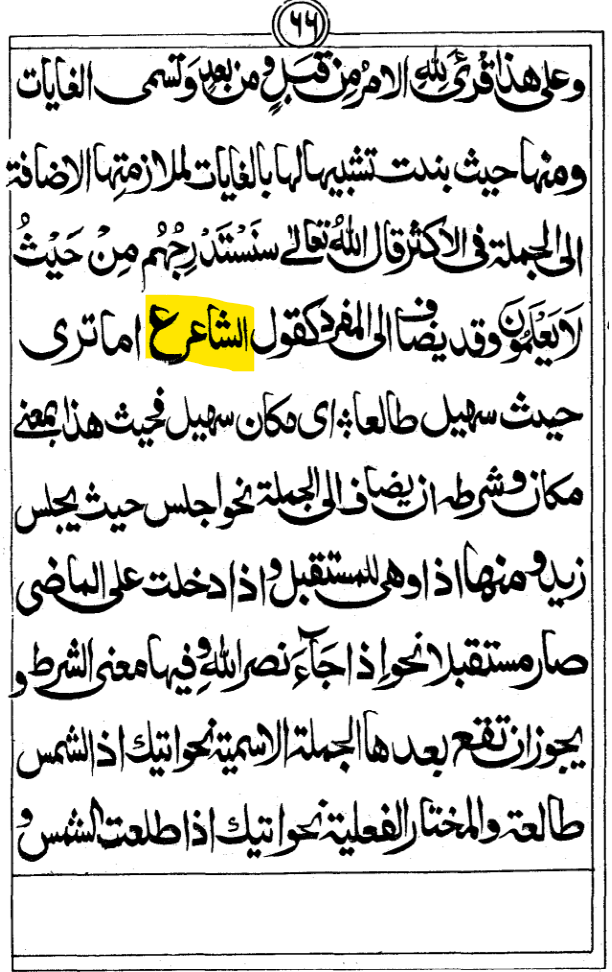 ٦٦
وعلى هذا قُرِئَ لِلّٰهِ الامرُ مِن قَبلٍ ومن بعدٍ وتسمى الغايات
ومنها حيث بنيت تشبيها لها بالغايات لملازمتها الاضافة
الى الجملة فى الاكثر قال اللّٰهُ تعالى سنَسْتَدْرِجُهُم مِنْ حَيْثُ
لَا يَعْلَمُوْنَ وقد يضاف الى المفرد كقول الشاعر ع اما ترى
حيث سهيل طالعا؞ اى مكان سهيل فحيث هذا بمعنى
مكان وشرطه ان يضاف الى الجملة نحو اجلس حيث يجلس
زيد ومنها اذا وهى للمستقبل واذا دخلت على الماضى
صار مستقبلا نحو اِذا جَآءَ نصر اللّٰهِ وفيها معنى الشرط و
يجوز ان تقع بعدها الجملة الاسمية نحو اتيك اذا الشمس
طالعة والمختار الفعلية نحو اتيك اذا طلعت الشمس و